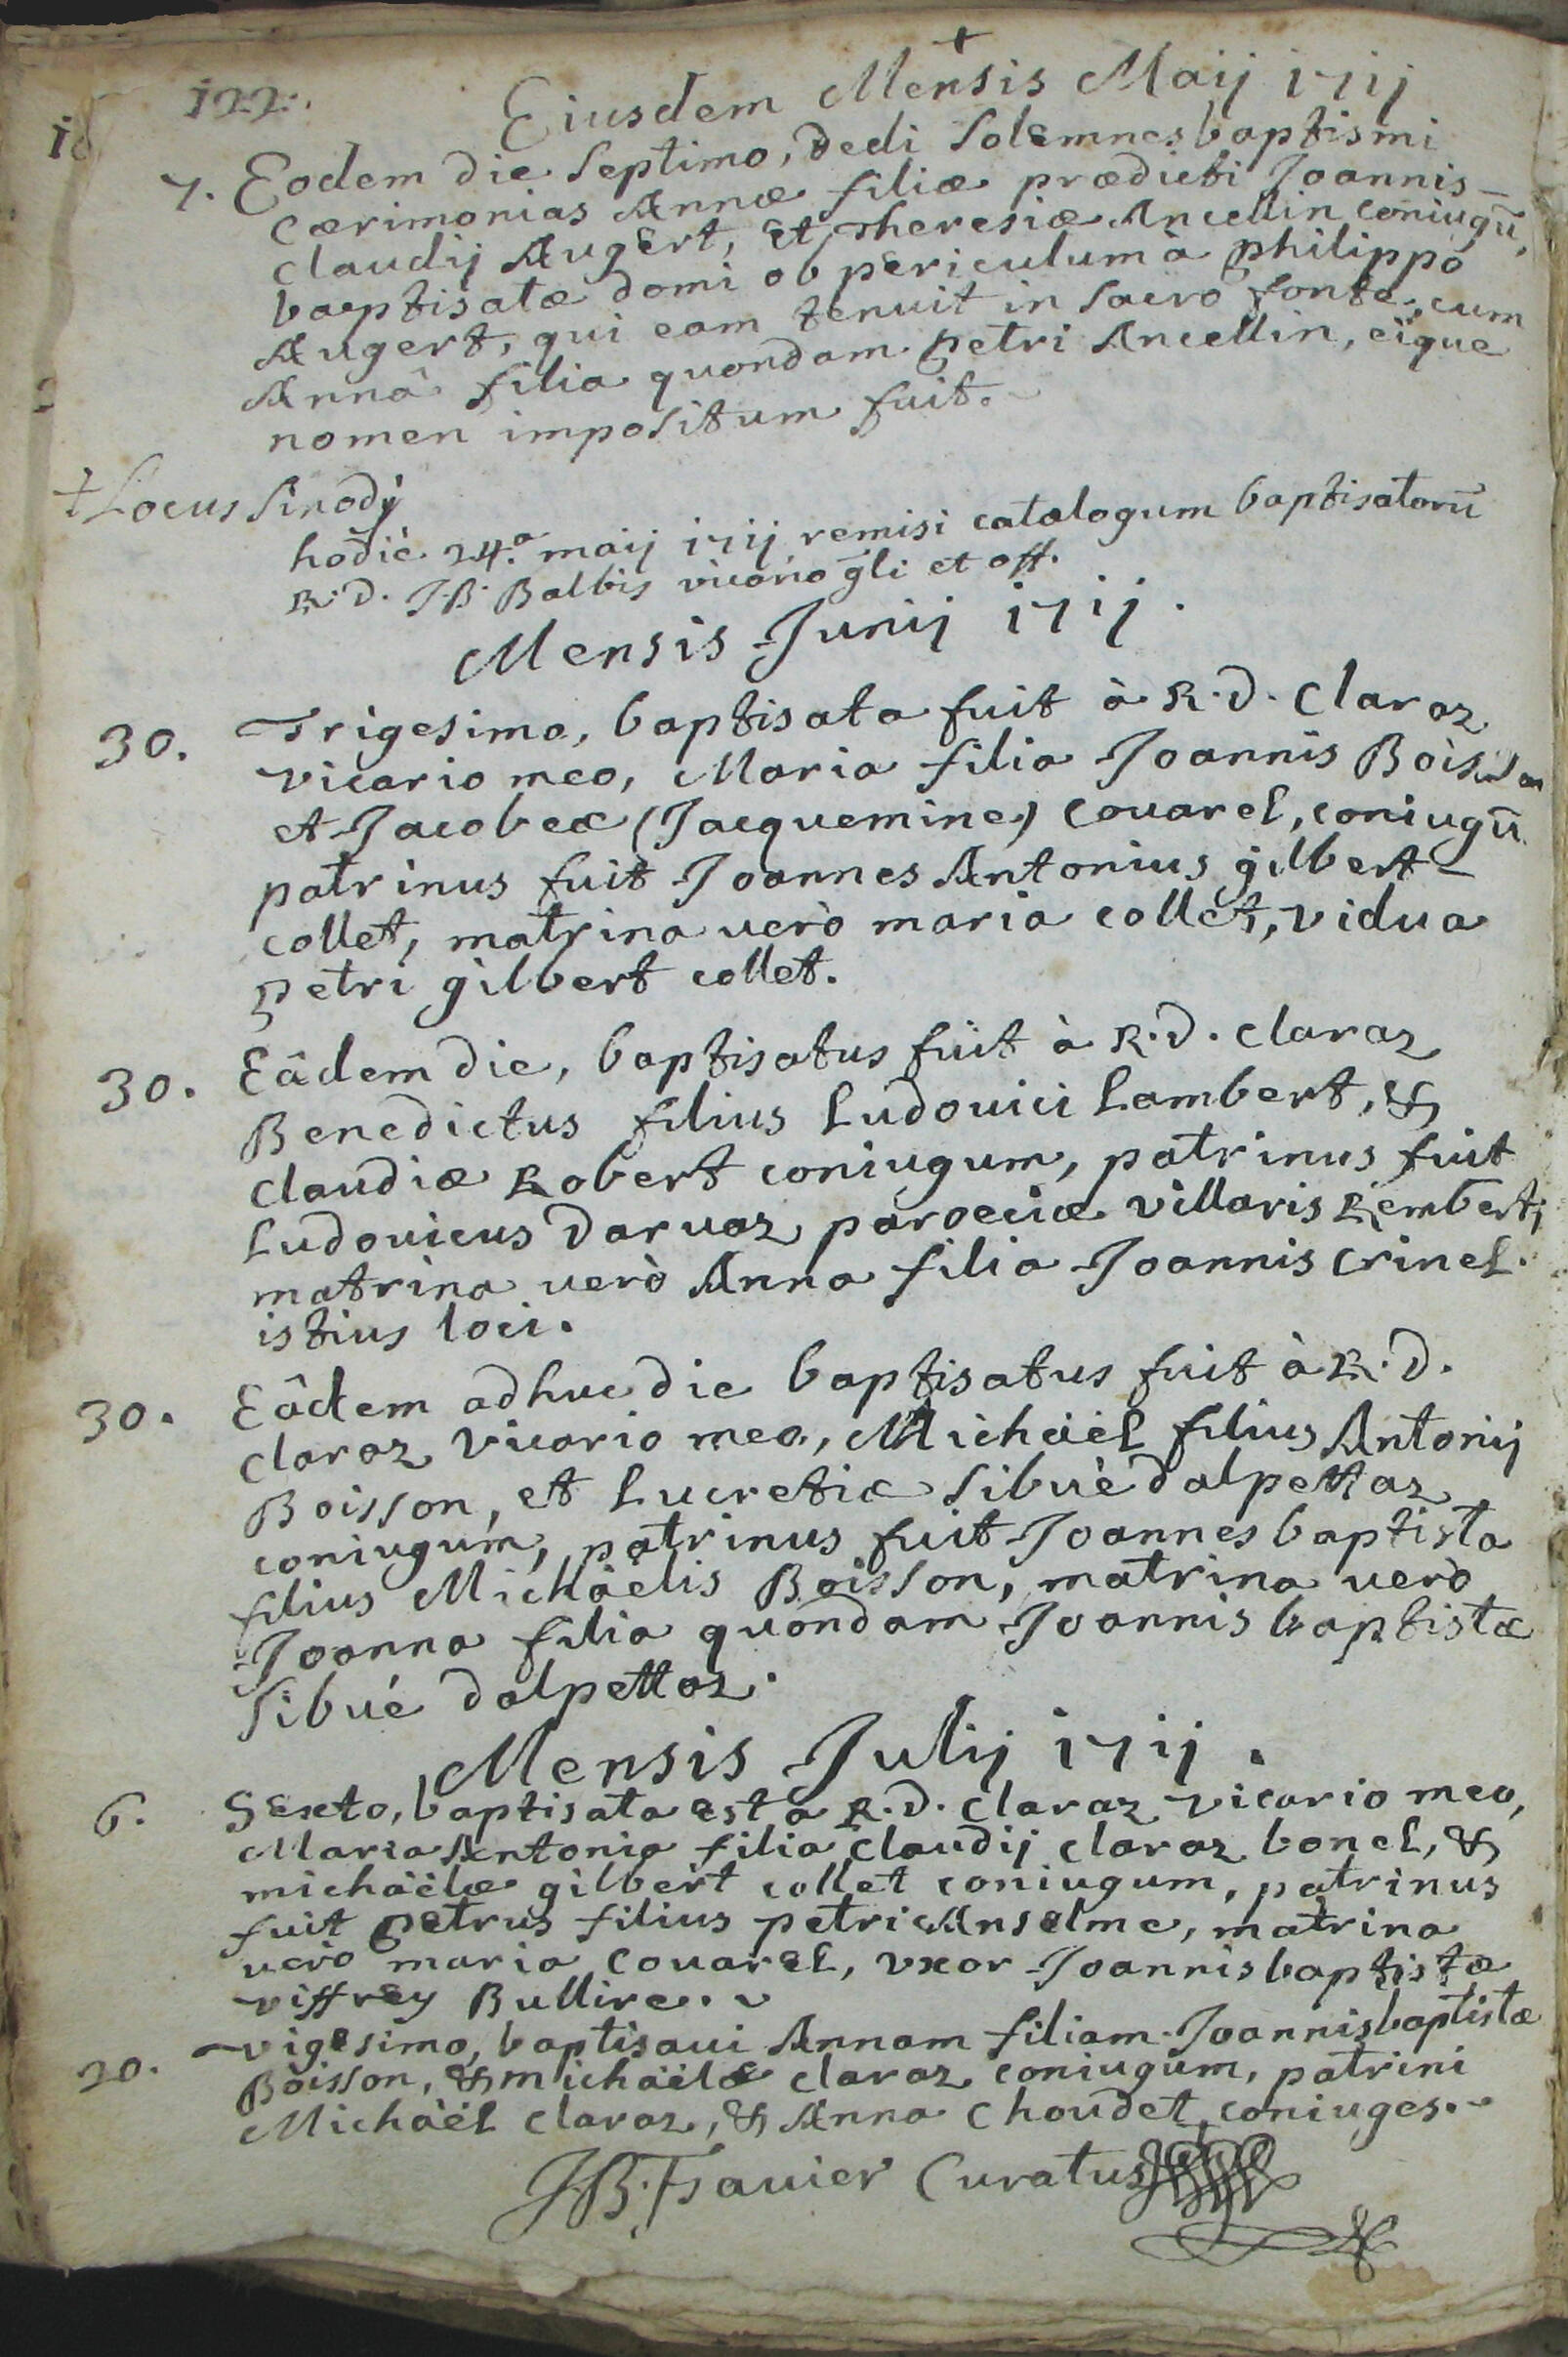 122.
+
Eiusdem Mensis Maij 1711
7. Eodem die septimo, dedi solemnes baptismi
cærimonias Annæ filiæ prædicti Joannis-
claudij Augert, et Theresiæ Ancellin coniugū,
baptisatæ domi ob periculum à philippo
Augert, qui eam tenuit in sacro fonte, cum
Annâ filia quondam petri Ancellin, eique
nomen impositum fuit.
+ Locus sinodÿ
hodie 24.a maij 1711 remisi catalogum baptisatorū
R.D. J.B. Balbis vicario gli et off.
Mensis Junij 1711.
30. Trigesimo, baptisata fuit à R.D. Claraz
vicario meo, Maria filia Joannis Boisson
et Jacobeæ (Jacquemine) couarel, coniugū
patrinus fuit Joannes Antonius gilbert-
collet, matrina verò maria collet, vidua
petri gilbert collet.
30. Eâdem die, baptisatus fuit à R.D. claraz
Benedictus filius Ludouici Lambert, &
claudiæ Robert coniugum, patrinus fuit
Ludouicus Daruaz parœciæ villaris Rembert,
matrina verò Anna filia Joannis crinel
istius loci.
30. Eâdem adhuc die baptisatus fuit à R.D.
claraz vicario meo, Michäèl filius Antonij
Boisson, et Lucretiæ sibuè dalpettaz
coniugum, patrinus fuit Joannes baptista
filius Michäelis Boisson, matrina verò
Joanna filia quondam Joannis baptistæ
Sibué dalpettaz.
Mensis Julij 1711.
6. Sexto, baptisata est a R.D. claraz vicario meo,
Maria Antonia filia claudij claraz bonel, &
michäèlæ gilbert collet coniugum, patrinus
fuit petrus filius petri Anselme, matrina
verò maria couarel, vxor Joannis baptistæ
viffrey Bullire.
20. vigesimo, baptisaui Annam filiam Joannis baptistæ
Boisson, & michäèlæ claraz coniugum, patrini
Michäèl claraz, & Anna choudet coniuges.
J.B. Frauier Curatus